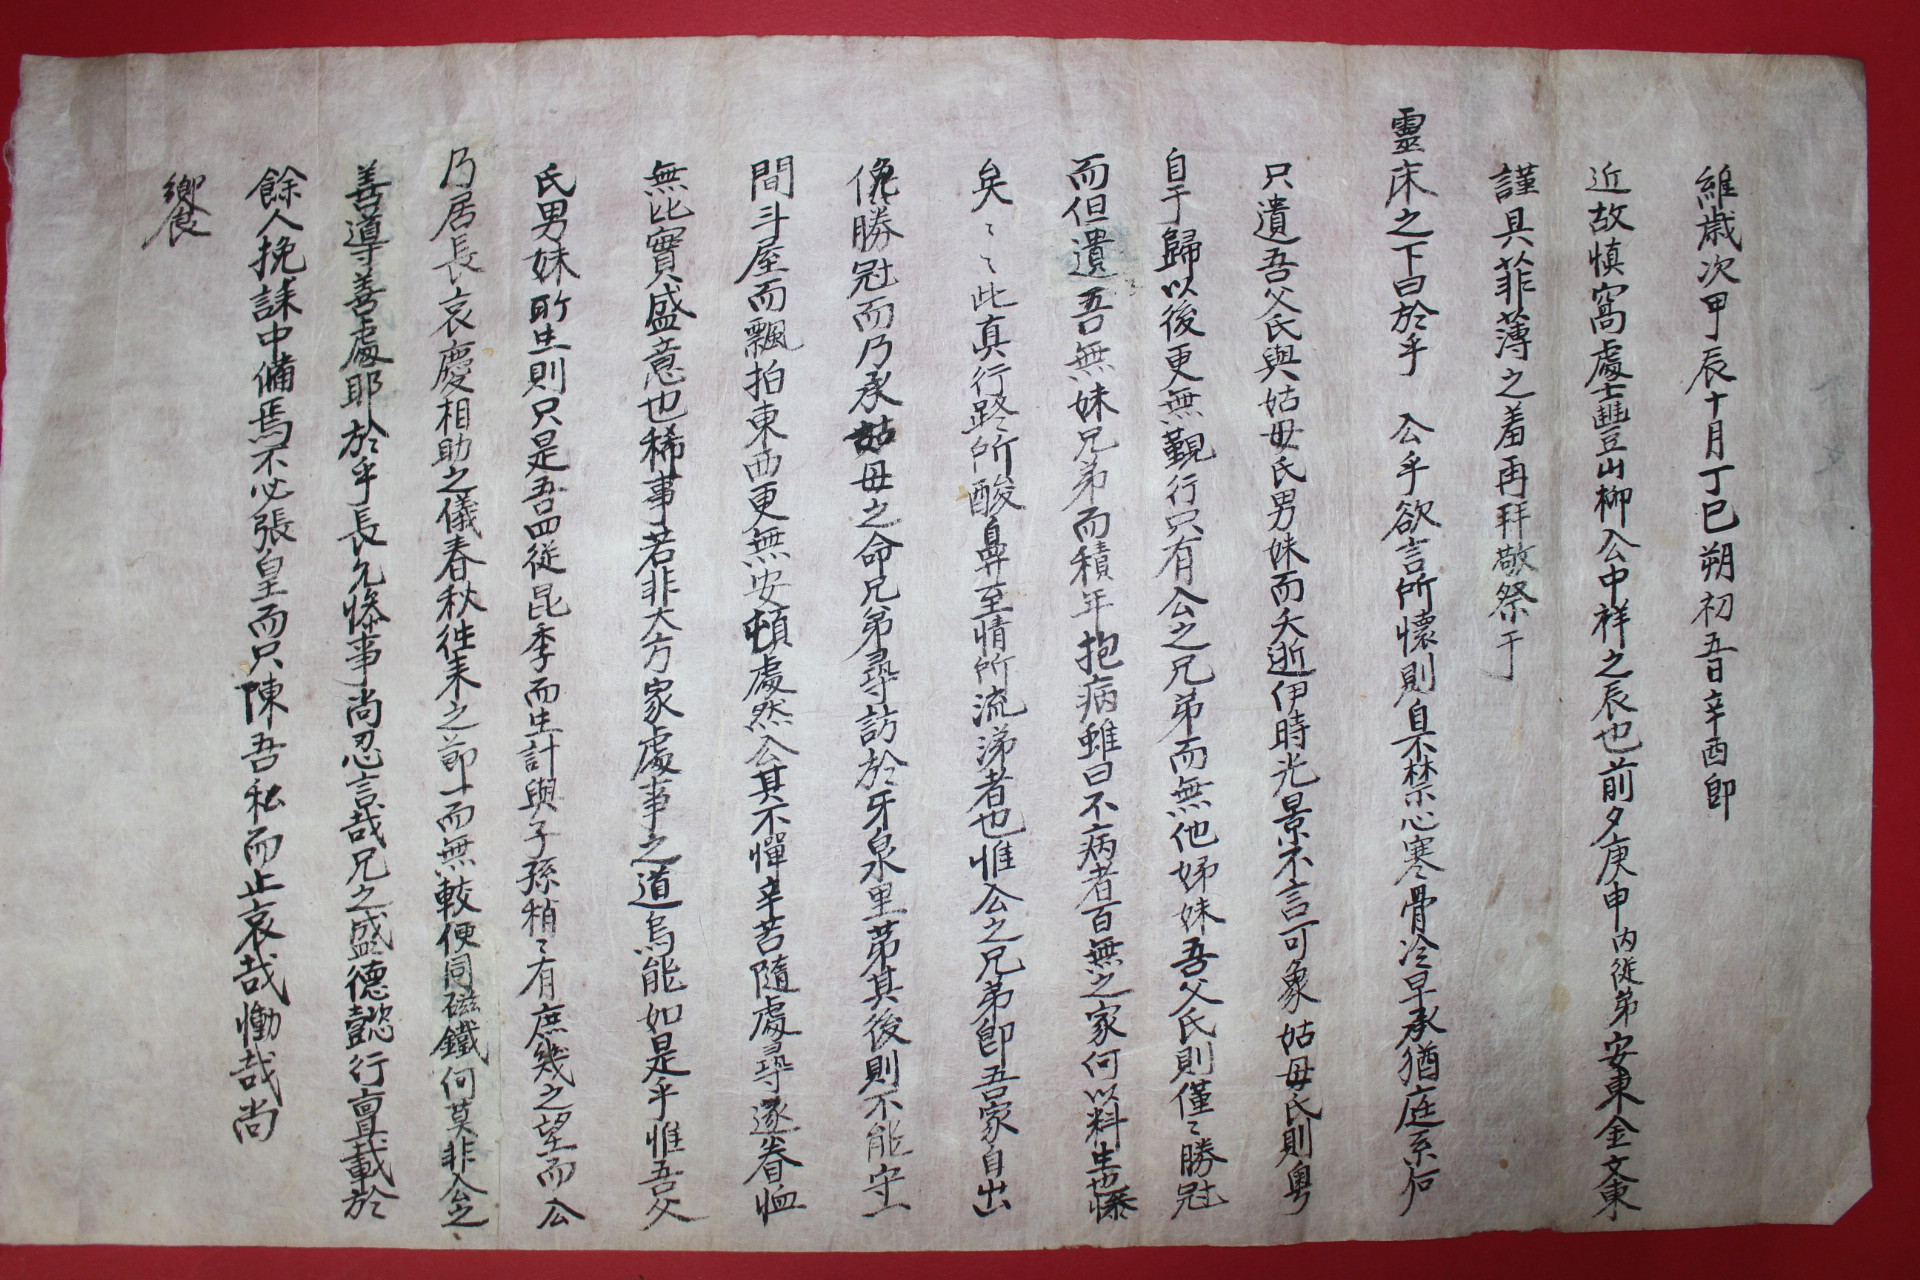 維歲次甲辰十月丁巳朔初五日辛酉卽
近故愼窩處士豐山柳公中祥之辰也前夕庚申內從弟安東金文東
謹具菲薄之羞再拜敬祭于
靈床之下曰於乎 公乎欲言所懷則自不禁心寒骨冷早承猶庭系后
只遺吾父氏與姑母氏男妹而夭逝伊時光景不言可象姑母氏則粤
自于歸以後更無覲行只有公之兄弟而無他娣妹吾父氏則僅〻勝冠
而但遺吾無妹兄弟而積年抱病雖曰不病者百無之家何以料生也慘
矣〻〻此真行路所酸鼻至情所流涕者也惟公之兄弟卽吾家自出
俛勝冠而乃承姑母之命兄弟尋訪於牙泉里第其後則不能守一
間斗屋而飄拍東西更無安頓處然公其不憚辛苦隨處尋逐眷恤
無比實盛意也稀事若非大方家處事之道烏能如是乎惟吾父
氏男妹所生則只是吾四從昆季而生計與子孫稍〻有庶幾之望而公
乃居長哀慶相助之儀春秋往來之節一而無較便同磁鐵何莫非公之
善導善處耶於乎長兄慘事尚忍言哉兄之盛德懿行亶載於
餘人挽誄中備焉不必張皇而只陳吾私而止哀哉慟哉尚
饗